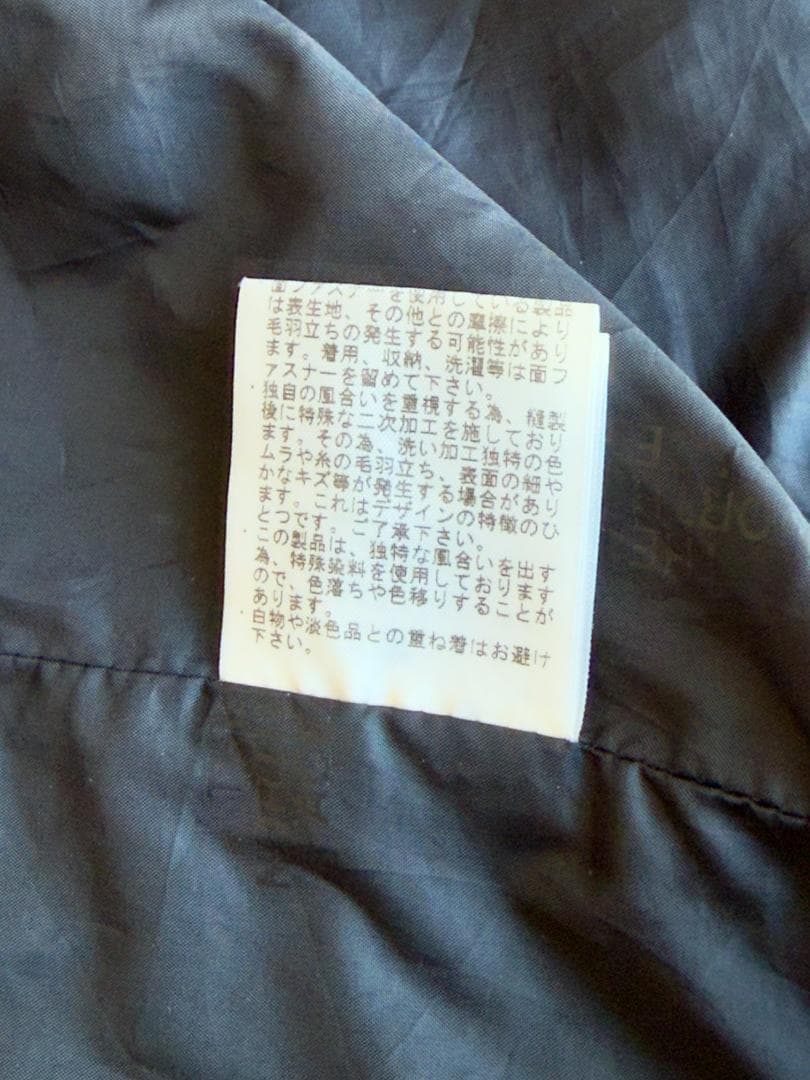 面ファスナーを使用している製品
は表生地、その他との摩擦により
毛羽立ちの発生する可能性があり
ます。着用、収納、洗濯等は面フ
ァスナーを留めて下さい。
・独自の風合いを重視する為、縫製
後に特殊な二次加工を施しており
ます。その為、洗い加工独特の色
ムラや糸の毛羽立ち、表面の細や
かなキズ等が発生する場合があり
ます。これはデザインの特徴のひ
とつです。ご了承下さい。
・この製品は、独特な風合いを出す
為、特殊染料を使用しております
ので、色落ちや色移りすることが
あります。
・白物や淡色品との重ね着はお避け
下さい。